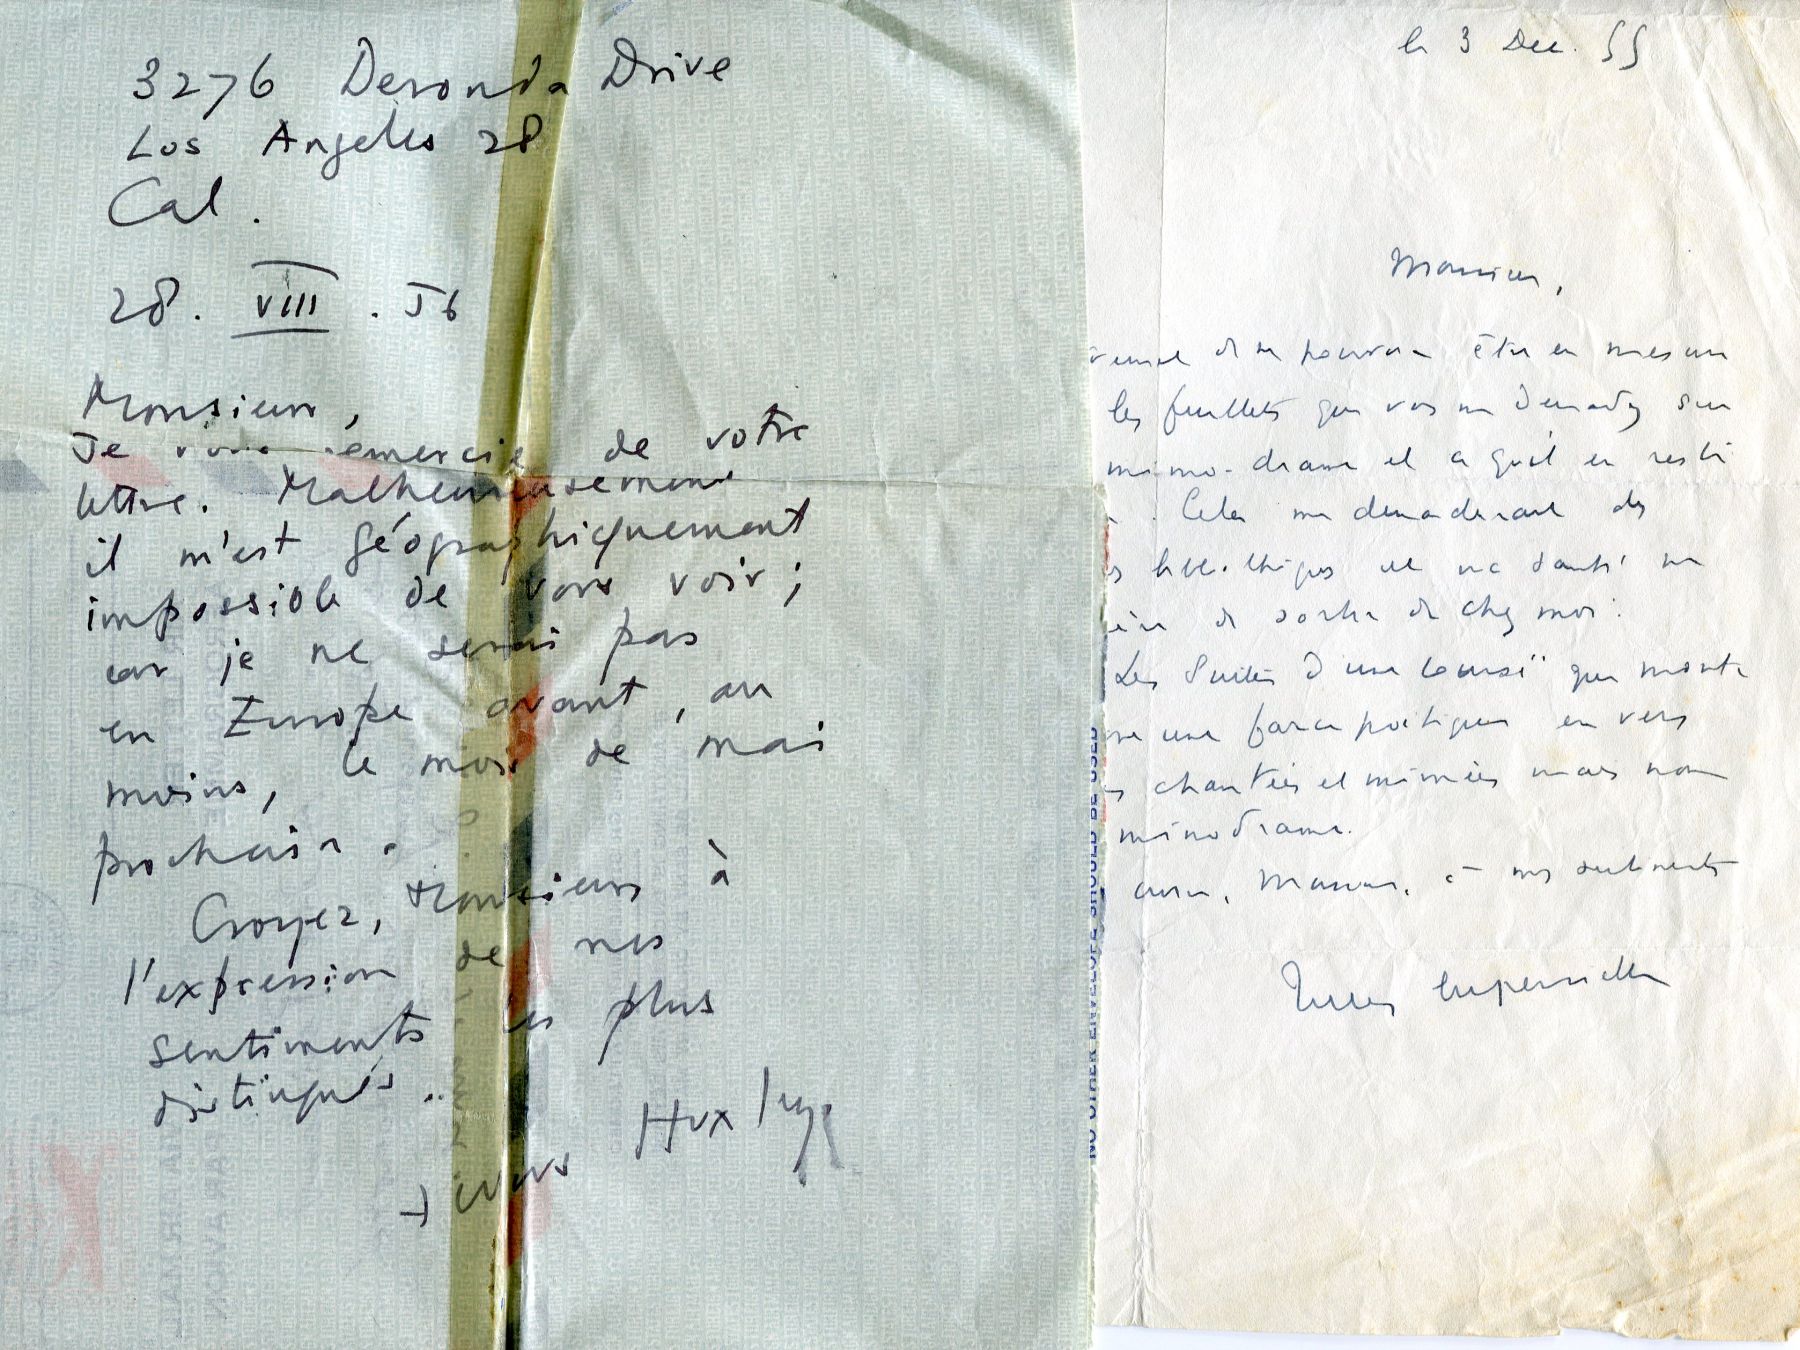 3276 Deronda Drive
Los Angeles 28
Cal.
28. VIII. 56
Monsieur,
Je vous remercie de votre
lettre. Malheureusement
il m'est géographiquement
impossible de vous voir;
car je ne serai pas
en Europe avant, au
moins, le mois de mai
prochain.
Croyez, Monsieur, à
l'expression de mes
sentiments les plus
distingués.
Huxley
NO OTHER ENVELOPE SHOULD BE USED
le 3 Dec. 55
Monsieur,
de ne pouvoir être en mesure
les feuillets que vous me demandez sur
mimo-drame et ce qu'il en reste
. Cela me demanderait des
et ma santé me
de sortir de chez moi.
Les Suites d'une course" que monte
une farce poétique en vers
chantées et mimées mais non
mimodrame.
, Monsieur, à mes sentiments
Jules Supervielle